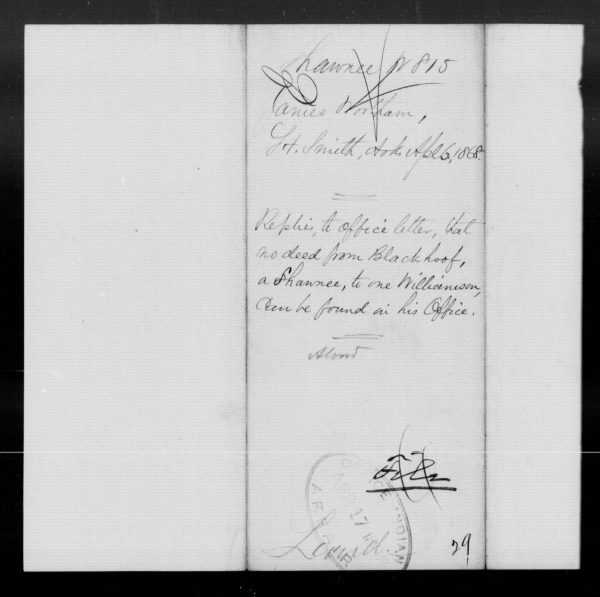 Shawnee W 815
James Wortham,
Ft. Smith, Ark. Apl 6, 1868.
Replies, to office letter, that
no deed from Blackhoof,
a Shawnee, to one Williamson,
can be found in his Office.
File
OFFICE INDIAN AFFAIRS
APR 17
29